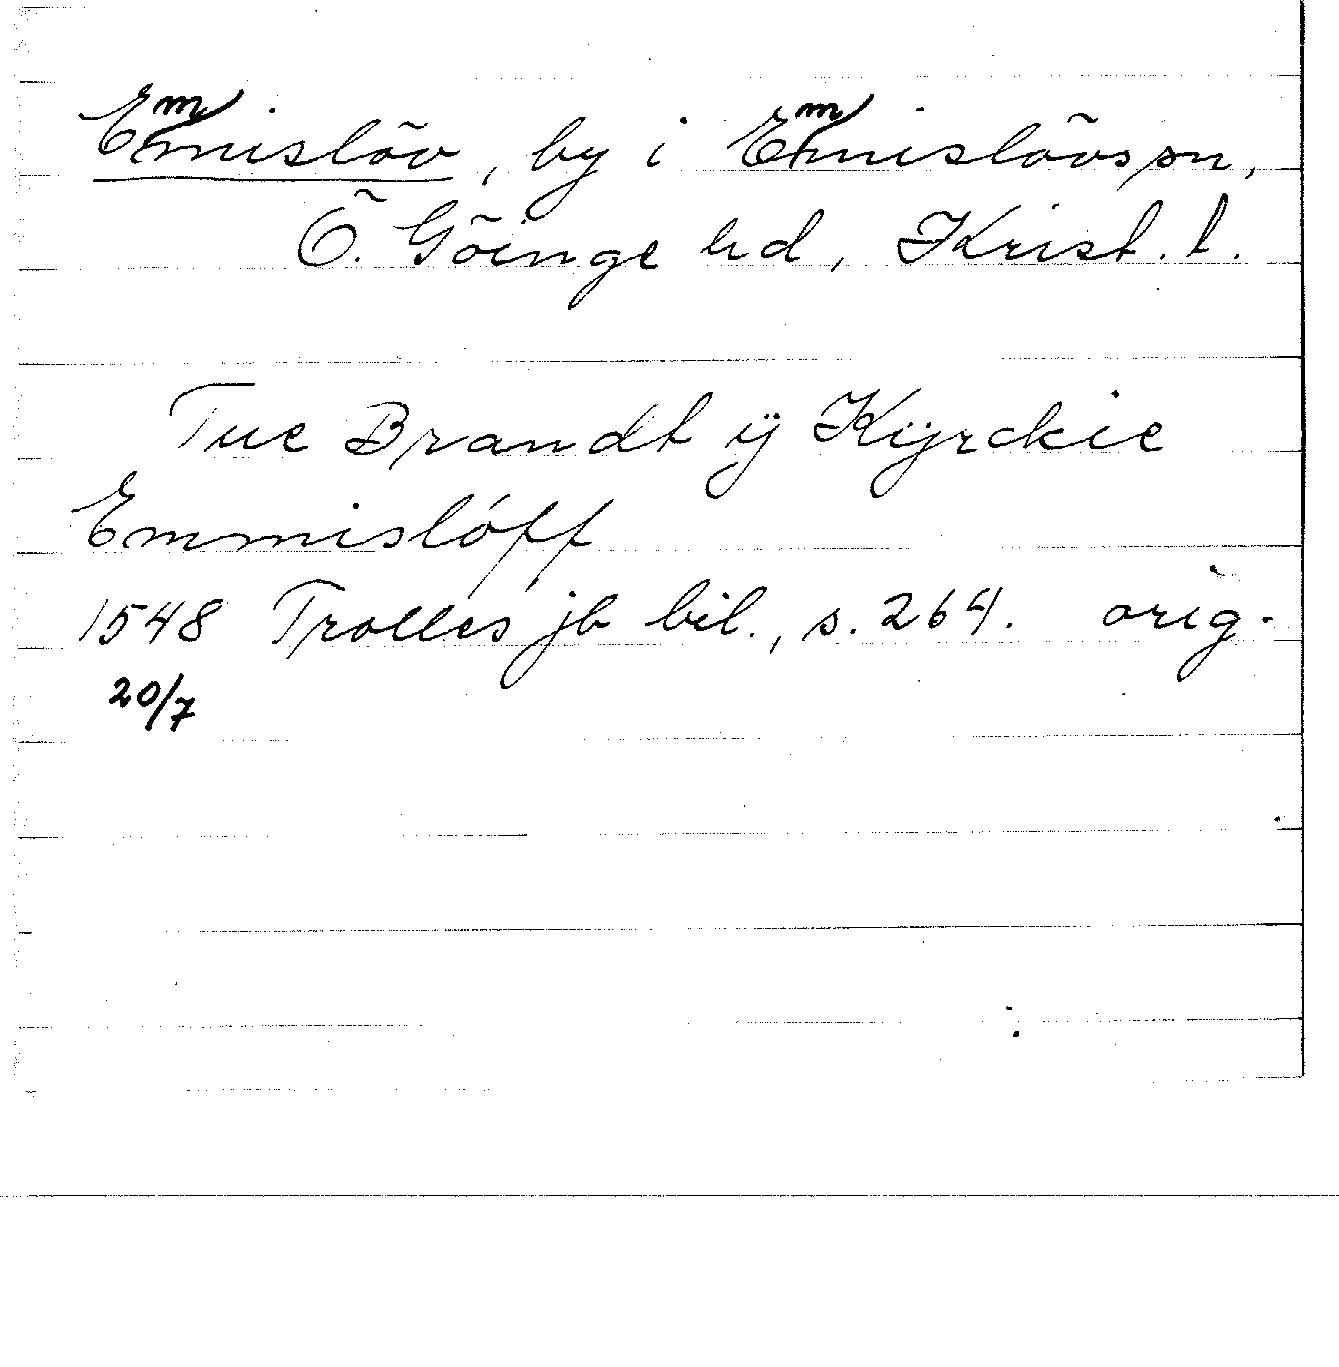 Emmislöv, by i Emmislövs sn,
Ö. Göinge hd, Krist. l.
Tue Brandt ÿ Kÿrckie
Emmislóff
1548 Trolles jb bil., s. 264. orig.
20/7